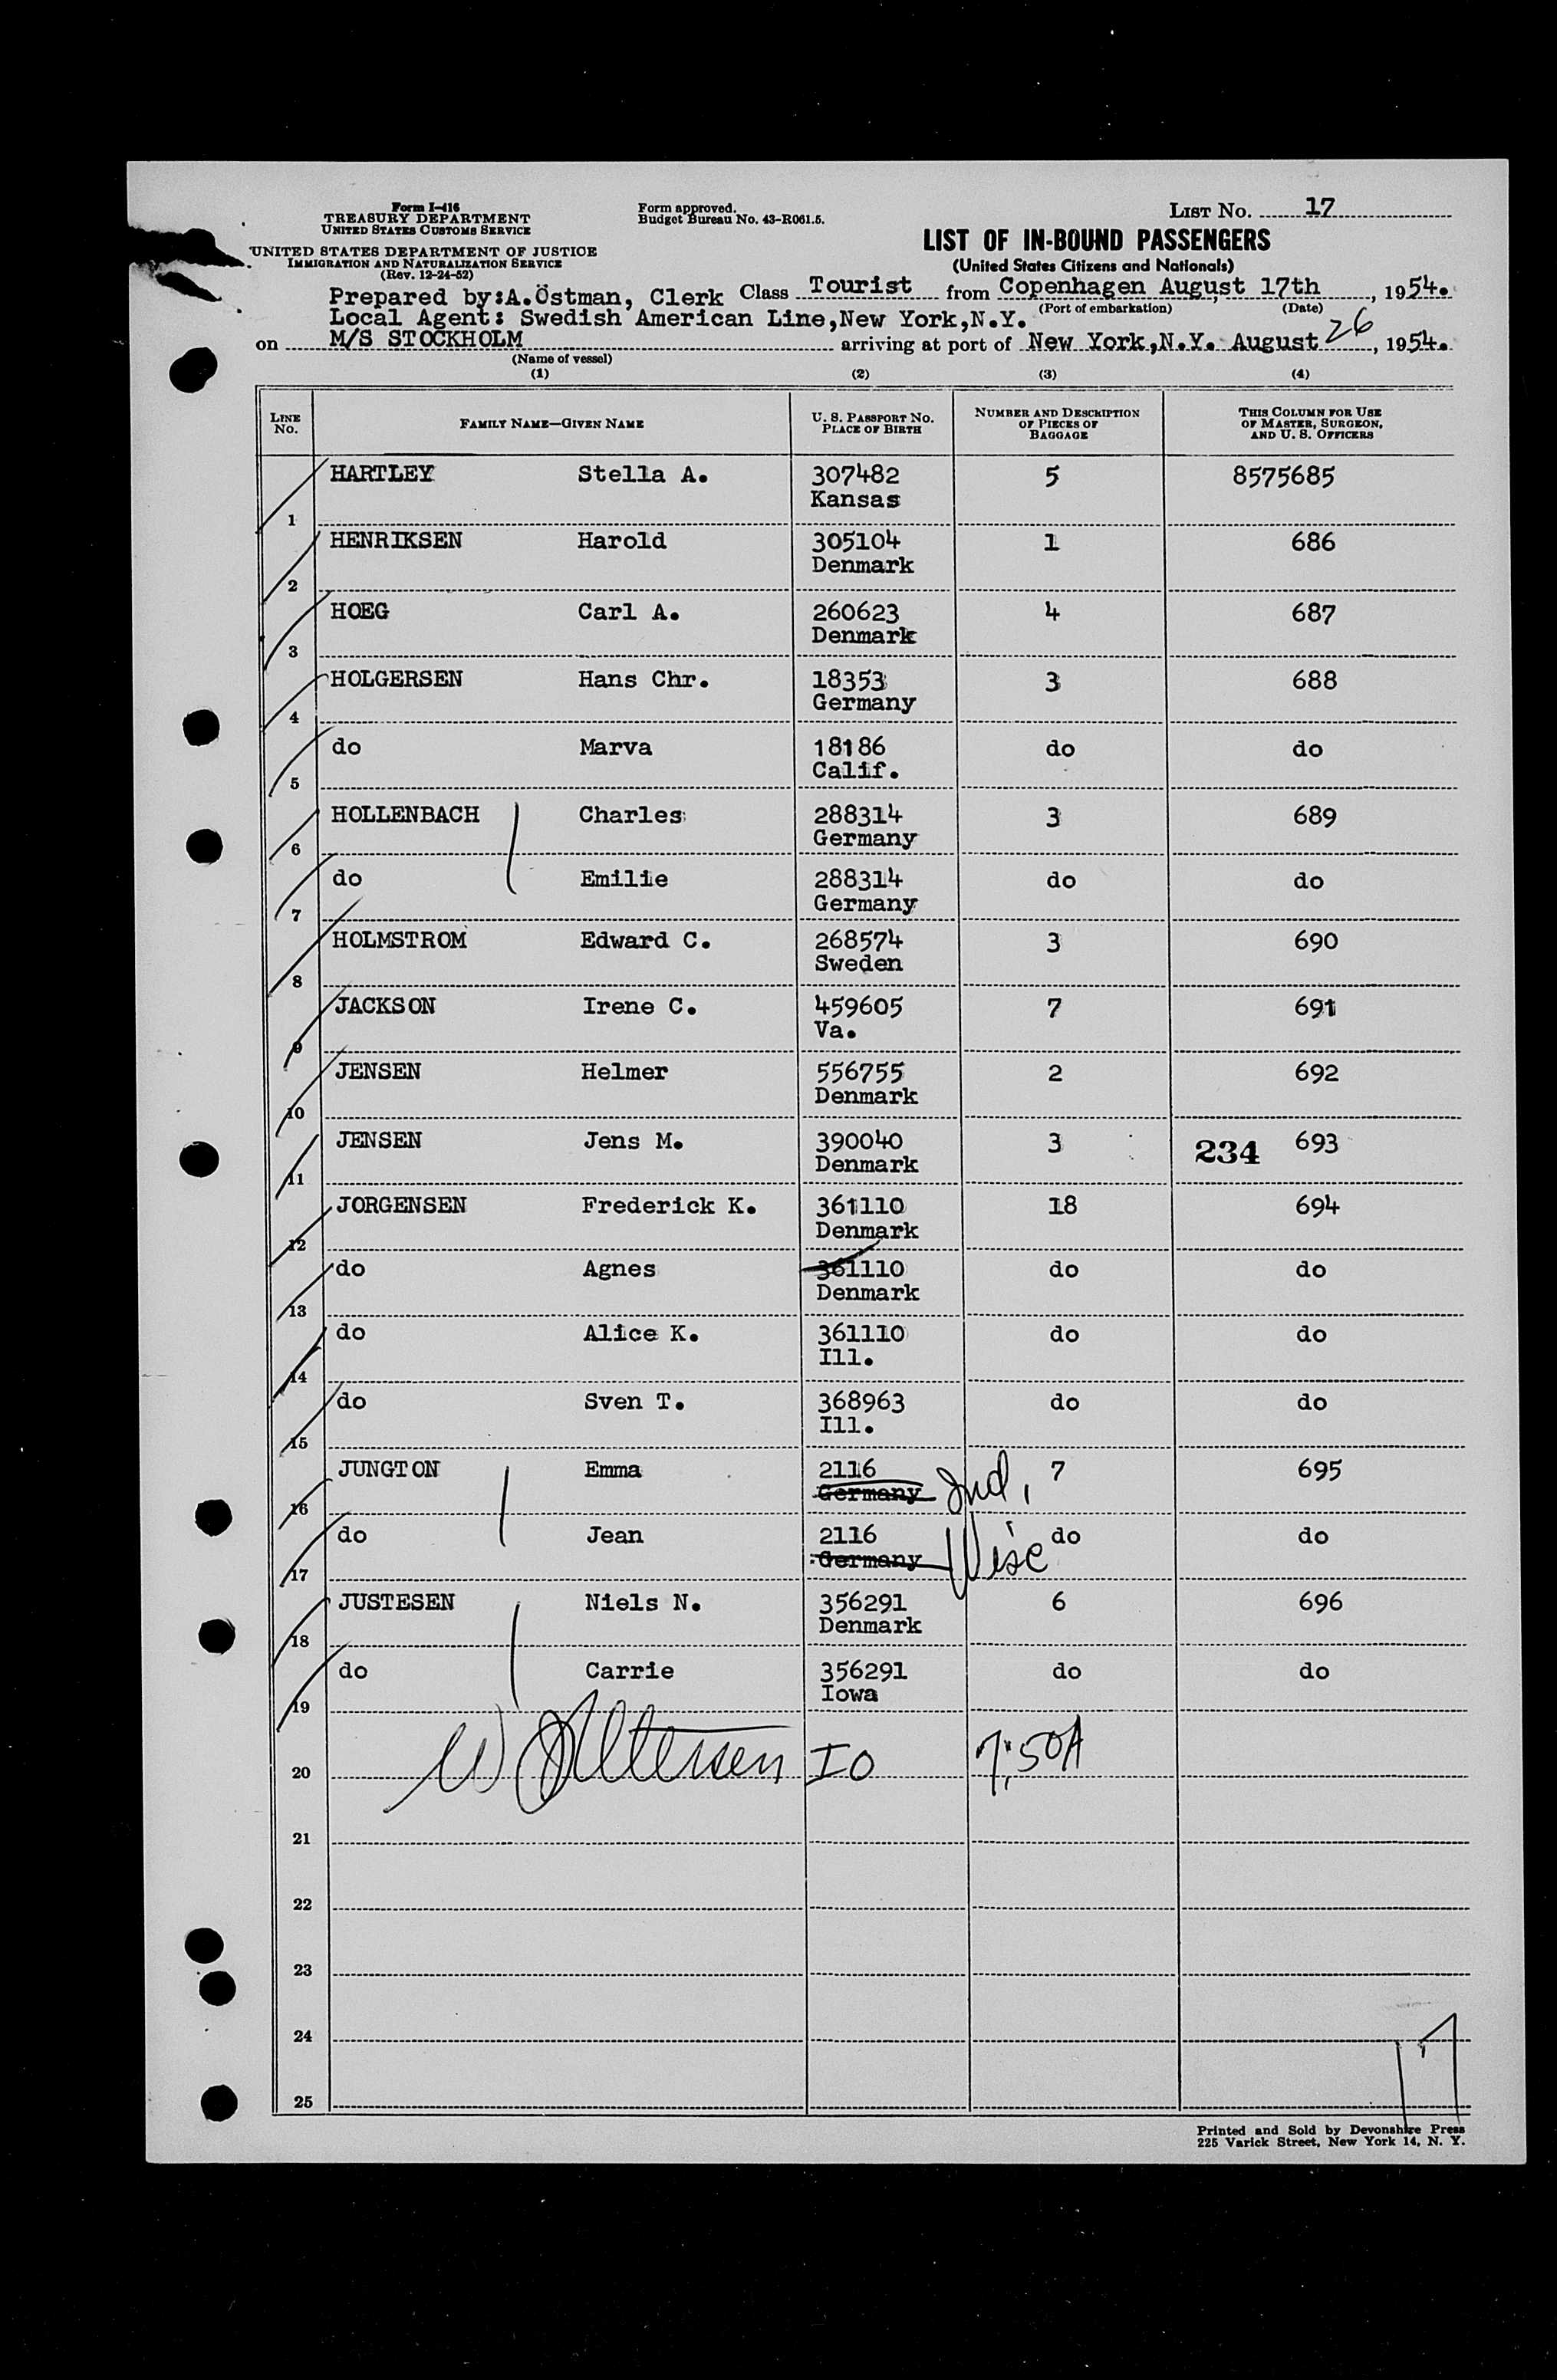 Form I-416
TREASURY DEPARTMENT
UNITED STATES CUSTOMS SERVICE
UNITED STATES DEPARTMENT OF JUSTICE
IMMIGRATION AND NATURALIZATION SERVICE
(Rev. 12-24-52)
Form approved.
Budget Bureau No. 43-R061.5.
LIST NO. 17
LIST OF IN-BOUND PASSENGERS
(United States Citizens and Nationals)
Prepared by:A.Östman, Clerk Class Tourist from Copenhagen August 17th, 1954.
Local Agent: Swedish American Line,New York,N.Y. (Port of embarkation) (Date)
on M/S STOCKHOLM arriving at port of New York,N.Y. August 26, 1954.
(Name of vessel)
(1) (2) (3) (4)
LINE NO. FAMILY NAME—GIVEN NAME U. S. PASSPORT NO. PLACE OF BIRTH NUMBER AND DESCRIPTION OF PIECES OF BAGGAGE THIS COLUMN FOR USE OF MASTER, SURGEON, AND U. S. OFFICERS
HARTLEY Stella A. 307482 5 8575685
1 Kansas
HENRIKSEN Harold 305104 1 686
2 Denmark
HOEG Carl A. 260623 4 687
3 Denmark
HOLGERSEN Hans Chr. 18353 3 688
4 Germany
do Marva 18186 do do
5 Calif.
HOLLENBACH Charles 288314 3 689
6 Germany
do Emilie 288314 do do
7 Germany
HOLMSTROM Edward C. 268574 3 690
8 Sweden
JACKSON Irene C. 459605 7 691
9 Va.
JENSEN Helmer 556755 2 692
10 Denmark
JENSEN Jens M. 390040 3 234 693
11 Denmark
JORGENSEN Frederick K. 361110 18 694
12 Denmark
do Agnes 361110 do do
13 Denmark
do Alice K. 361110 do do
14 Ill.
do Sven T. 368963 do do
15 Ill.
JUNGTON Emma 2116 7 695
16 Germany Ind,
do Jean 2116 do do
17 Germany Wisc
JUSTESEN Niels N. 356291 6 696
18 Denmark
do Carrie 356291 do do
19 Iowa
20 IO 7:50A
21
22
23
24
25
17
Printed and Sold by Devonshire Press
225 Varick Street, New York 14, N. Y.